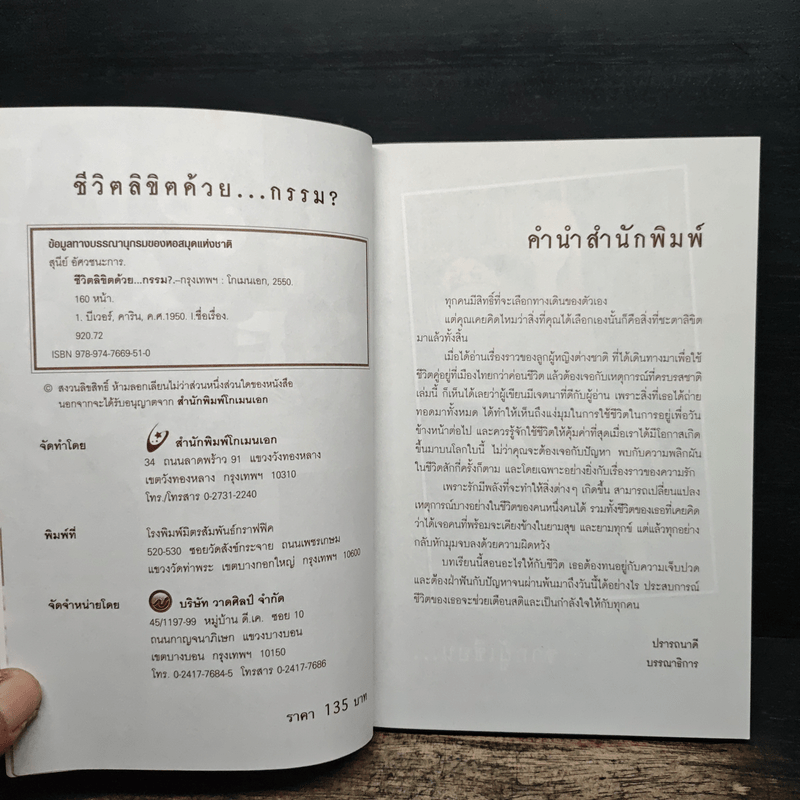 ชีวิตลิขิตด้วย...กรรม?
ข้อมูลทางบรรณานุกรมของหอสมุดแห่งชาติ
สุนีย์ อัศวชนะการ.
ชีวิตลิขิตด้วย...กรรม?.–กรุงเทพฯ : โกเมนเอก, 2550.
160 หน้า.
1. บีเวอร์, คาริน, ค.ศ.1950. I.ชื่อเรื่อง.
920.72
ISBN 978-974-7669-51-0
© สงวนลิขสิทธิ์ ห้ามลอกเลียนไม่ว่าส่วนหนึ่งส่วนใดของหนังสือ
นอกจากจะได้รับอนุญาตจาก สำนักพิมพ์โกเมนเอก
จัดทำโดย
สำนักพิมพ์โกเมนเอก
34 ถนนลาดพร้าว 91 แขวงวังทองหลาง
เขตวังทองหลาง กรุงเทพฯ 10310
โทร./โทรสาร 0-2731-2240
พิมพ์ที่
โรงพิมพ์มิตรสัมพันธ์กราฟฟิค
520-530 ซอยวัดสังข์กระจาย ถนนเพชรเกษม
แขวงวัดท่าพระ เขตบางกอกใหญ่ กรุงเทพฯ 10600
จัดจำหน่ายโดย
บริษัท วาดศิลป์ จำกัด
45/1197-99 หมู่บ้าน ดี.เค. ซอย 10
ถนนกาญจนาภิเษก แขวงบางบอน
เขตบางบอน กรุงเทพฯ 10150
โทร. 0-2417-7684-5 โทรสาร 0-2417-7686
ราคา 135 บาท
คำนำสำนักพิมพ์
ทุกคนมีสิทธิ์ที่จะเลือกทางเดินของตัวเอง
แต่คุณเคยคิดไหมว่าสิ่งที่คุณได้เลือกเองนั้นก็คือสิ่งที่ชะตาลิขิต
มาแล้วทั้งสิ้น
เมื่อได้อ่านเรื่องราวของลูกผู้หญิงต่างชาติ ที่ได้เดินทางมาเพื่อใช้
ชีวิตคู่อยู่ที่เมืองไทยกว่าค่อนชีวิต แล้วต้องเจอกับเหตุการณ์ที่ครบรสชาติ
เล่มนี้ ก็เห็นได้เลยว่าผู้เขียนมีเจตนาที่ดีกับผู้อ่าน เพราะสิ่งที่เธอได้ถ่าย
ทอดมาทั้งหมด ได้ทำให้เห็นถึงแง่มุมในการใช้ชีวิตในการอยู่เพื่อวัน
ข้างหน้าต่อไป และควรรู้จักใช้ชีวิตให้คุ้มค่าที่สุดเมื่อเราได้มีโอกาสเกิด
ขึ้นมาบนโลกใบนี้ ไม่ว่าคุณจะต้องเจอกับปัญหา พบกับความพลิกผัน
ในชีวิตสักกี่ครั้งก็ตาม และโดยเฉพาะอย่างยิ่งกับเรื่องราวของความรัก
เพราะรักมีพลังที่จะทำให้สิ่งต่างๆ เกิดขึ้น สามารถเปลี่ยนแปลง
เหตุการณ์บางอย่างในชีวิตของคนหนึ่งคนได้ รวมทั้งชีวิตของเธอที่เคยคิด
ว่าได้เจอคนที่พร้อมจะเคียงข้างในยามสุข และยามทุกข์ แต่แล้วทุกอย่าง
กลับหักมุมจบลงด้วยความผิดหวัง
บทเรียนนี้สอนอะไรให้กับชีวิต เธอต้องทนอยู่กับความเจ็บปวด
และต้องฝ่าฟันกับปัญหาจนผ่านพ้นมาถึงวันนี้ได้อย่างไร ประสบการณ์
ชีวิตของเธอจะช่วยเตือนสติและเป็นกำลังใจให้กับทุกคน
ปรารถนาดี
บรรณาธิการ